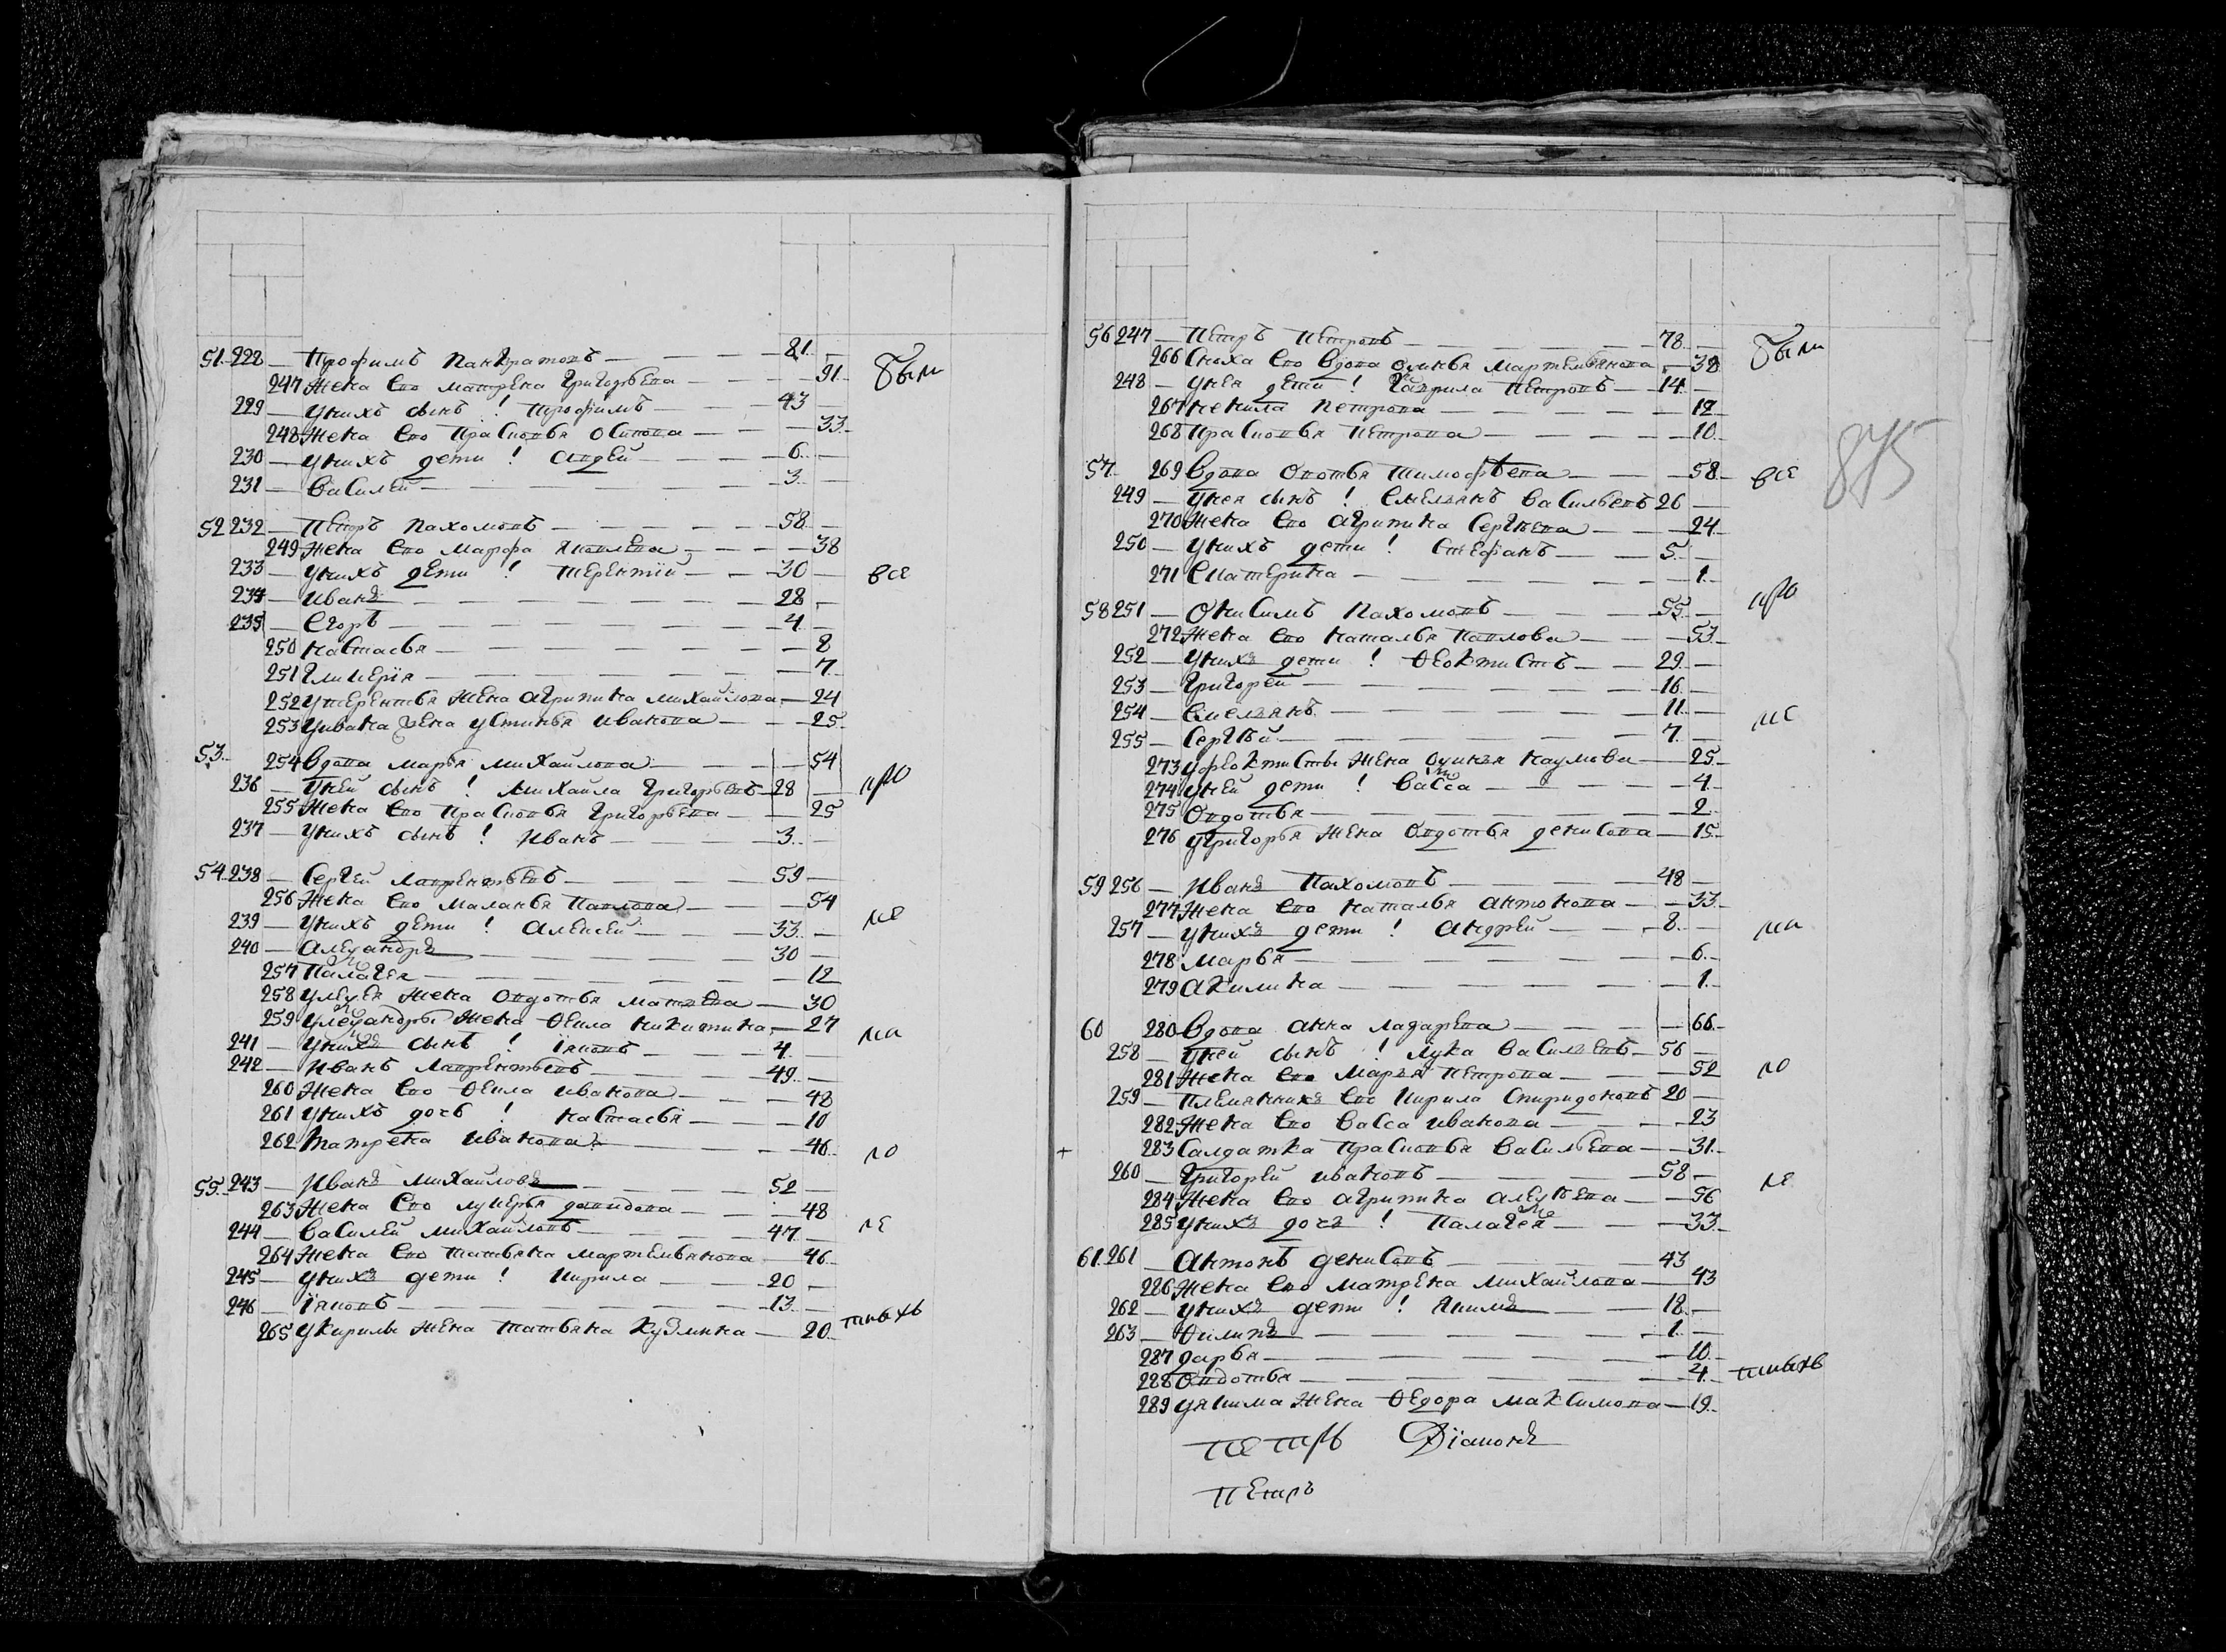 51 228 — Трофимъ Панкратовъ — 81
247 Жена Ево Матрена Григорьева — 91
были
229 — Унихъ сынъ! Трофимъ — 43
248 Жена Ево Прасковья Осипова — 33
230 — Унихъ дети! Авдей — 6
231 — Василей — 3
52 232 — Петръ Пахомовъ — 58
249 Жена Ево Марфа Яковлева — 38
233 — Унихъ дети! Терентій — 30
все
234 — Иванъ — 28
235 — Егоръ — 4
250 Настасья — 8
251 Гликерія — 7
252 Утерентья Жена Агрипина Михайлова — 24
253 Уивана Жена Устинья Иванова — 25
53 254 Вдова Марья Михайлова — 54
236 — Уней сынъ! Михайла Григорьевъ 28
про
255 Жена Ево Прасковья Григорьева — 25
237 — Унихъ сынъ! Иванъ — 3
54 238 — Сергей Лаврентьевъ — 59
256 Жена Ево Маланья Павлова — 54
239 — Унихъ дети! Алексей — 33
ле
240 — Александръ — 30
257 Палагея — 12
258 Жена Овдотья Матвева — 30
259 Жена Ѳекла Никитина — 27
241 — Унихъ сынъ! Іяковъ — 4
242 — Иванъ Лаврентьевъ — 49
260 Жена Ево Ѳекла Иванова — 48
261 Унихъ дочь! Настасья — 10
262 Матрена Иванова — 46
ло
55 243 — Иванъ Михайловъ — 52
263 Жена Ево Лукерья Давидова — 48
244 — Василей Михайловъ — 47
ле
264 Жена Ево Татьяна Мартемьянова — 46
245 — Унихъ дети! Кирила — 20
246 — Іяковъ — 13
265 Укирилы Жена Татьяна Кузмина — 20
56 247 — Петръ Петровъ — 78
были
266 Сноха Ево Вдова Мартемьянова — 38
248 — Унея дети! Гаврила Петровъ — 14
267 Ненила Петрова — 12
268 Прасковья Петрова — 10
875
57 269 Вдова Овотья Тимофѣева — 58
все
249 — Унея сынъ! Емельянъ Васильевъ 26
270 Жена Ево Агрипина Сергѣева — 24
250 — Унихъ дети! Стефанъ — 5
271 Екатерина — 1
58 251 — Онисимъ Пахомовъ — 55
про
272 Жена Ево Наталья Павлова — 53
252 — Унихъ дети! Ѳеоктистъ — 29
253 — Григорей — 16
254 — Емельянъ — 11
255 — Сергѣй — 7
273 Уфеоктисты Жена Наумова — 25
274 Уней дети! Васса — 4
275 Овдотья — 2
276 Угригорья Жена Овдотья Денисова — 15
59 256 — Иванъ Пахомовъ — 48
277 Жена Ево Наталья Антонова — 33
257 — Унихъ дети! Андрей — 8
278 Марья — 6
279 Акилина — 1
60 280 Вдова Анна Лазарева — 66
258 — Уней сынъ! Лука Васильевъ — 56
281 Жена Ево Марья Петрова — 52
ло
259 — Племянникъ Ево Кирила Спиридоновъ 20
282 Жена Ево Васса Иванова — 23
283 Салдатка Прасковья Васильева — 31
260 — Григорей Ивановъ — 58
ле
284 Жена Ево Агрипина Алексѣева — 56
285 Унихъ дочь! Палагея — 33
61 261 — Антонъ Денисовъ — 43
286 Жена Ево Матрена Михайлова — 43
262 — Унихъ дети! Якимъ — 18
263 — Ѳилипъ — 1
287 Дарья — 10
288 Овдотья — 4
289 Уякима Жена Ѳедора Максимова — 19
Петръ Діаконъ
Петръ